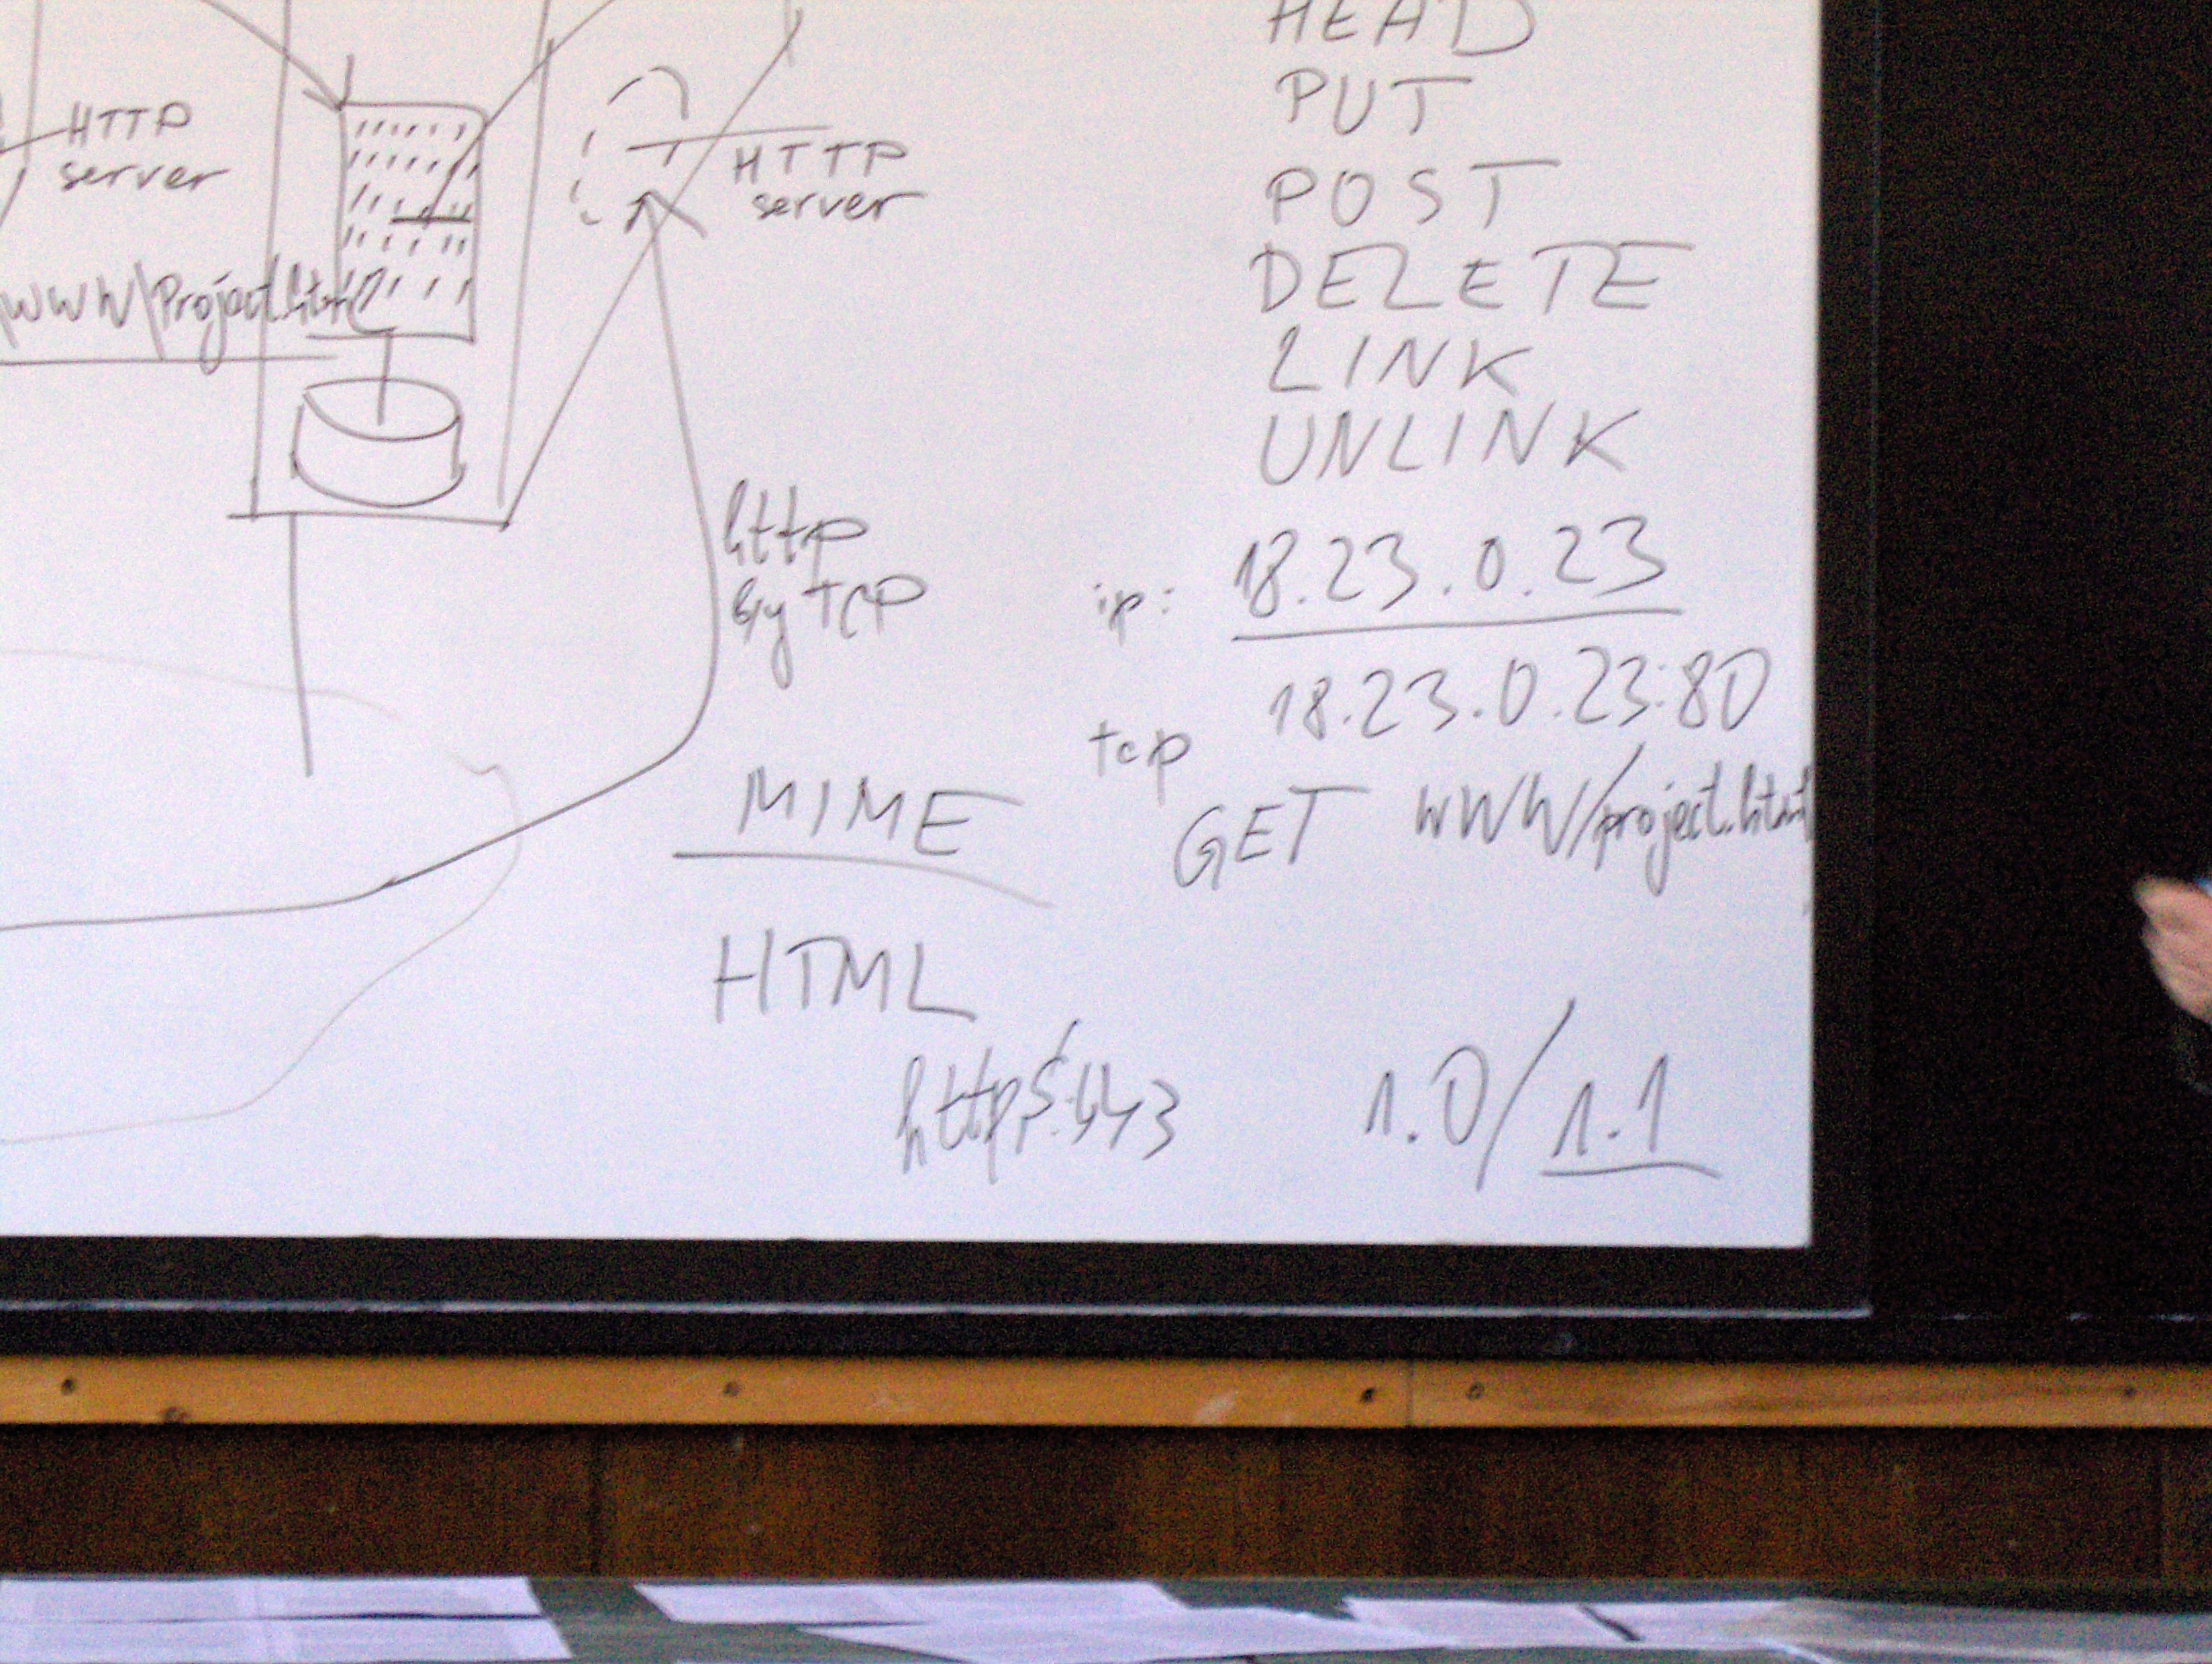 HTTP
server
\WWW\Project.html
HTTP
server
http
by TCP
MIME
HTML
https:443
HEAD
PUT
POST
DELETE
LINK
UNLINK
ip: 18.23.0.23
18.23.0.23:80
tcp
GET WWW/project.html
1.0/1.1